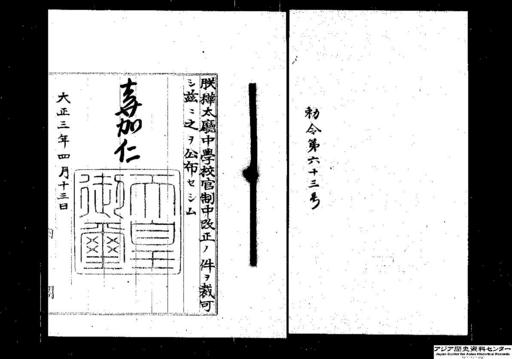 勅令第六十三号
朕樺太廳中學校官制中改正ノ件ヲ裁可
シ茲ニ之ヲ公布セシム
嘉仁
天皇御璽
大正三年四月十三日
内閣
アジア歴史資料センター
Japan Center for Asian Historical Records